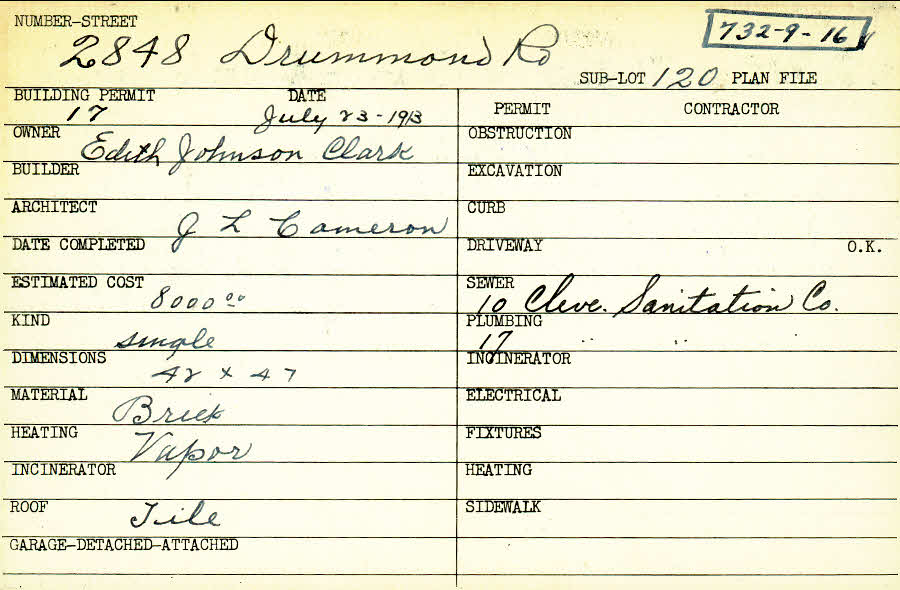 NUMBER-STREET
2848 Drummond Rd
732-9-16
SUB-LOT 120 PLAN FILE
BUILDING PERMIT DATE
17 July 23-1913
OWNER
Edith Johnson Clark
BUILDER
ARCHITECT
J L Cameron
DATE COMPLETED
ESTIMATED COST
8000 00
KIND
single
DIMENSIONS
42 x 47
MATERIAL
Brick
HEATING
Vapor
INCINERATOR
ROOF
Tile
GARAGE-DETACHED-ATTACHED
PERMIT CONTRACTOR
OBSTRUCTION
EXCAVATION
CURB
DRIVEWAY O.K.
SEWER
10 Cleve. Sanitation Co.
PLUMBING
17 " "
INCINERATOR
ELECTRICAL
FIXTURES
HEATING
SIDEWALK